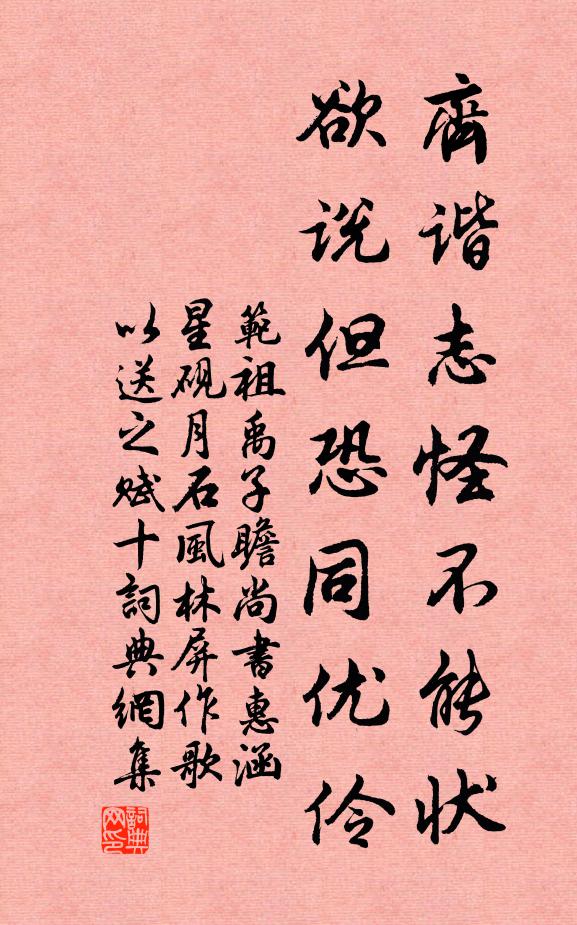 齊谐志怪不能状
欲说但恐同优伶
範祖禹子瞻尚書惠涵
星砚月石風林屏作歌
以送之赋十詞典網集
詞典网印